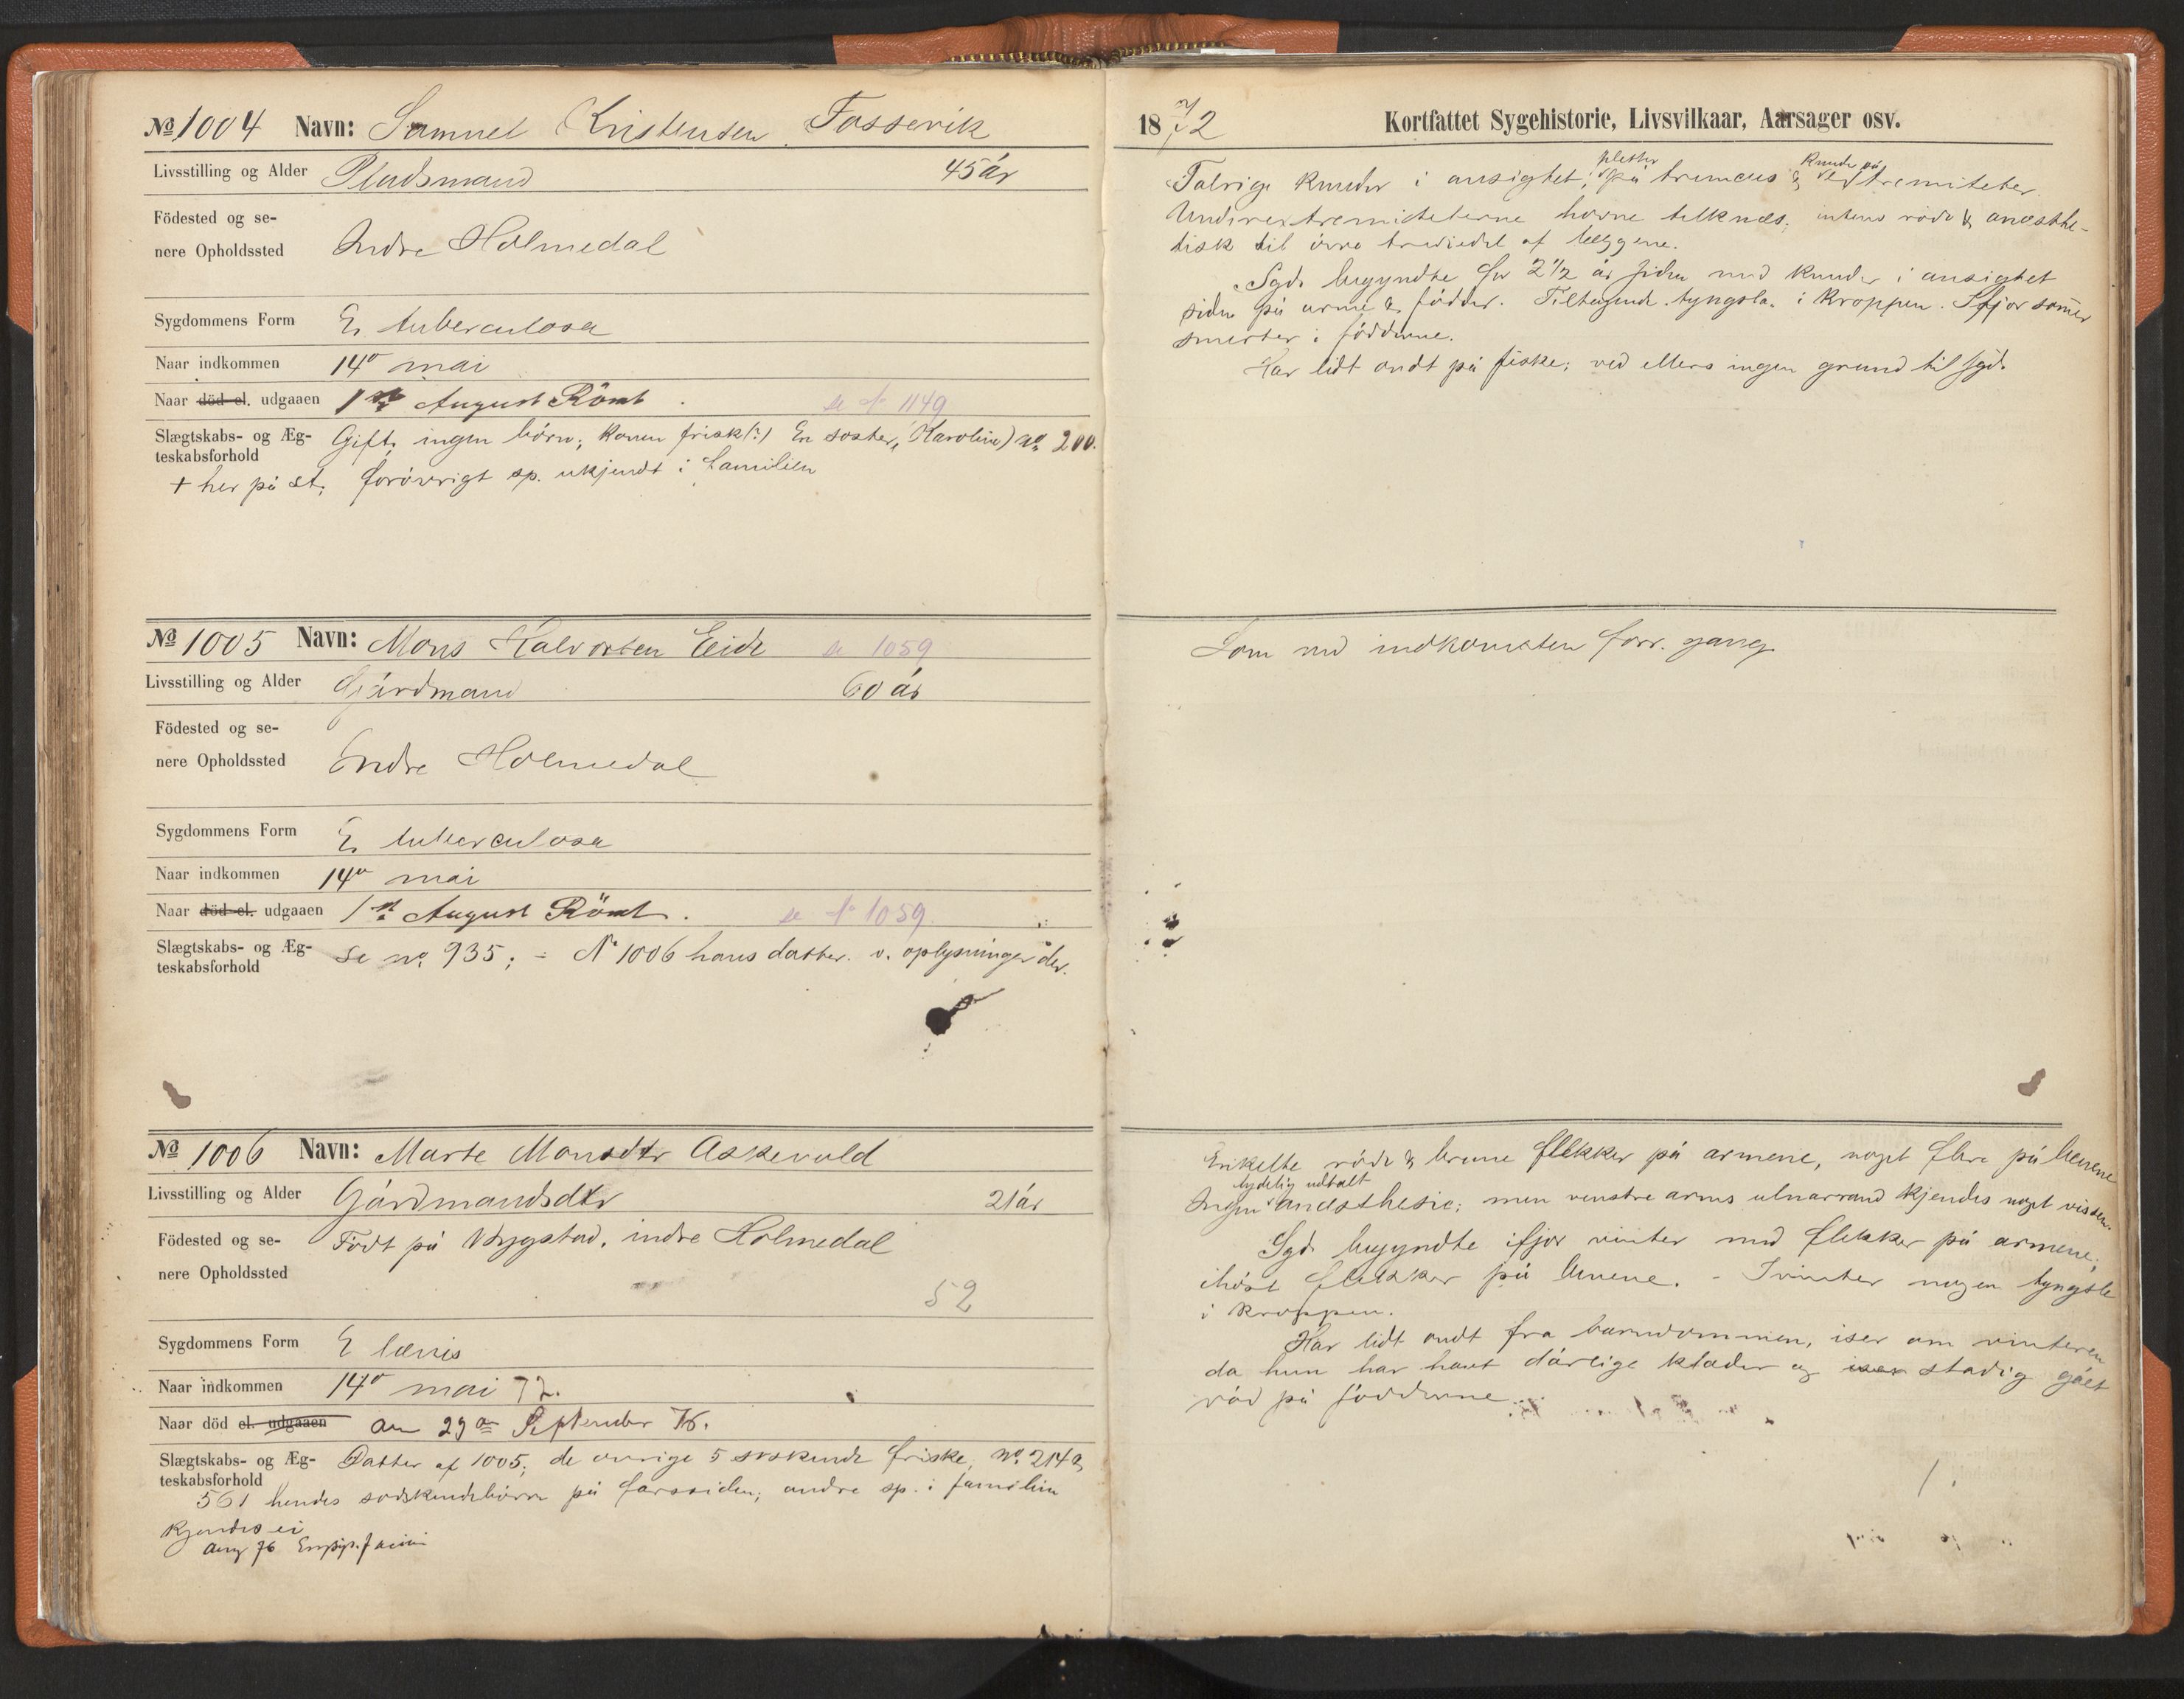 No 1004 Navn: Samuel Kristensen Fossevik
Livsstilling og Alder Pladsmand 45 år
Födested og se-
nere Opholdssted Indre Holmedal
Sygdommens Form E. tuberculosa
Naar indkommen 14de mai
Naar död el. udgaaen 1ste August Römt. se No 1149
Slægtskabs- og Æg- Gift, ingen börn; konen frisk (?) En söster, Karoline) No 200.
teskabsforhold
+ her på st; forövrigt sp. ukjendt i familien
No 1005 Navn: Mons Halvorsen Eide se 1059
Livsstilling og Alder Gårdmand 60 år
Födested og se-
nere Opholdssted Indre Holmedal
Sygdommens Form E. tuberculosa
Naar indkommen 14de mai
Naar död el. udgaaen 1ste August Römt. se No 1059
Slægtskabs- og Æg- Se no. 935; - No 1006 hans datter. v. oplysninger der.
teskabsforhold
No 1006 Navn: Marte Monsdtr Askevold
Livsstilling og Alder Gårdmandsdtr 21 år
Födested og se- Födt på Bygstad, indre Holmedal
nere Opholdssted
52
Sygdommens Form E lævis
Naar indkommen 14de mai 72.
Naar död el. udgaaen den 29de September 76.
Slægtskabs- og Æg- Datter af 1005; de övrige 5 söskende friske, No. 214 &
teskabsforhold
561 hendes södskendebörn på farssiden; andre sp. i familien
kjendes ei
Aug 76 faciei
1872 Kortfattet Sygehistorie, Livsvilkaar, Aarsager osv.
Talrige knuder i ansigtet; pletter på truncus & knuder på extremiteter.
Underextremiteterne hovne tilknæs; intens röde & anæsthe-
tisk til övre trediedel af læggene.
Sgd. begyndte for 2 1/2 år siden med knuder i ansigtet
siden på arme & födder. Tiltagende tyngsla i kroppen. Ifjor sommer
smerter i födderne.
Har lidt ondt på fiske; ved ellers ingen grund til sgd.
Som ved indkomsten forr. gang
Enkelte röde & brune flekker på armene, noget flere på benene
Ingen tydelig udtalt anæsthesie; men venstre arms ulnarrand kjendes noget vissen.
Sgd. begyndte ifjor vinter med flekker på armene;
ihöst flekker på benene. - Ivinter nogen tyngsle
i kroppen.
Har lidt ondt fra barndommen, især om vinteren
da hun har havt dårlige klæder og især stadig gået
våd på födderne.